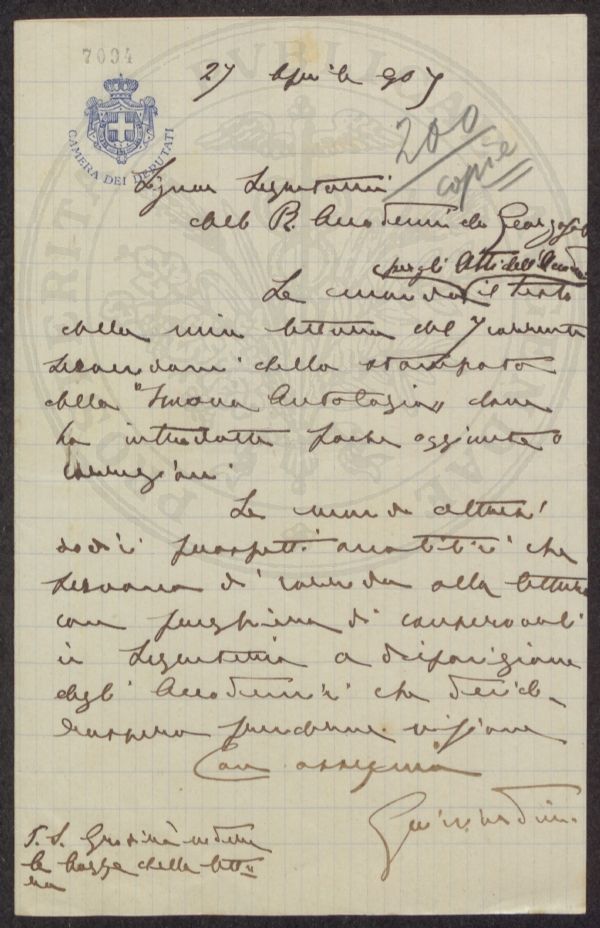 7094
27 Aprile 907
CAMERA DEI DEPUTATI
200
copie
Signor Segretario
della R. Accademia dei Georgofili
per gli Atti dell'Accad
Le mando il testo
della mia lettura del 7 corrente
servendomi dello stampato
della "Nuova Antologia" dove
ho introdotte poche aggiunte o
correzioni.
Le mando altresì
dodici prospetti analitici che
servono di corredo alla lettura
con preghiera di conservarli
in Segreteria a disposizione
degli Accademici che deside-
rassero prenderne visione
Con ossequio
Guicciardini
P.S. Gradirò vedere
le bozze della lettu=
ra